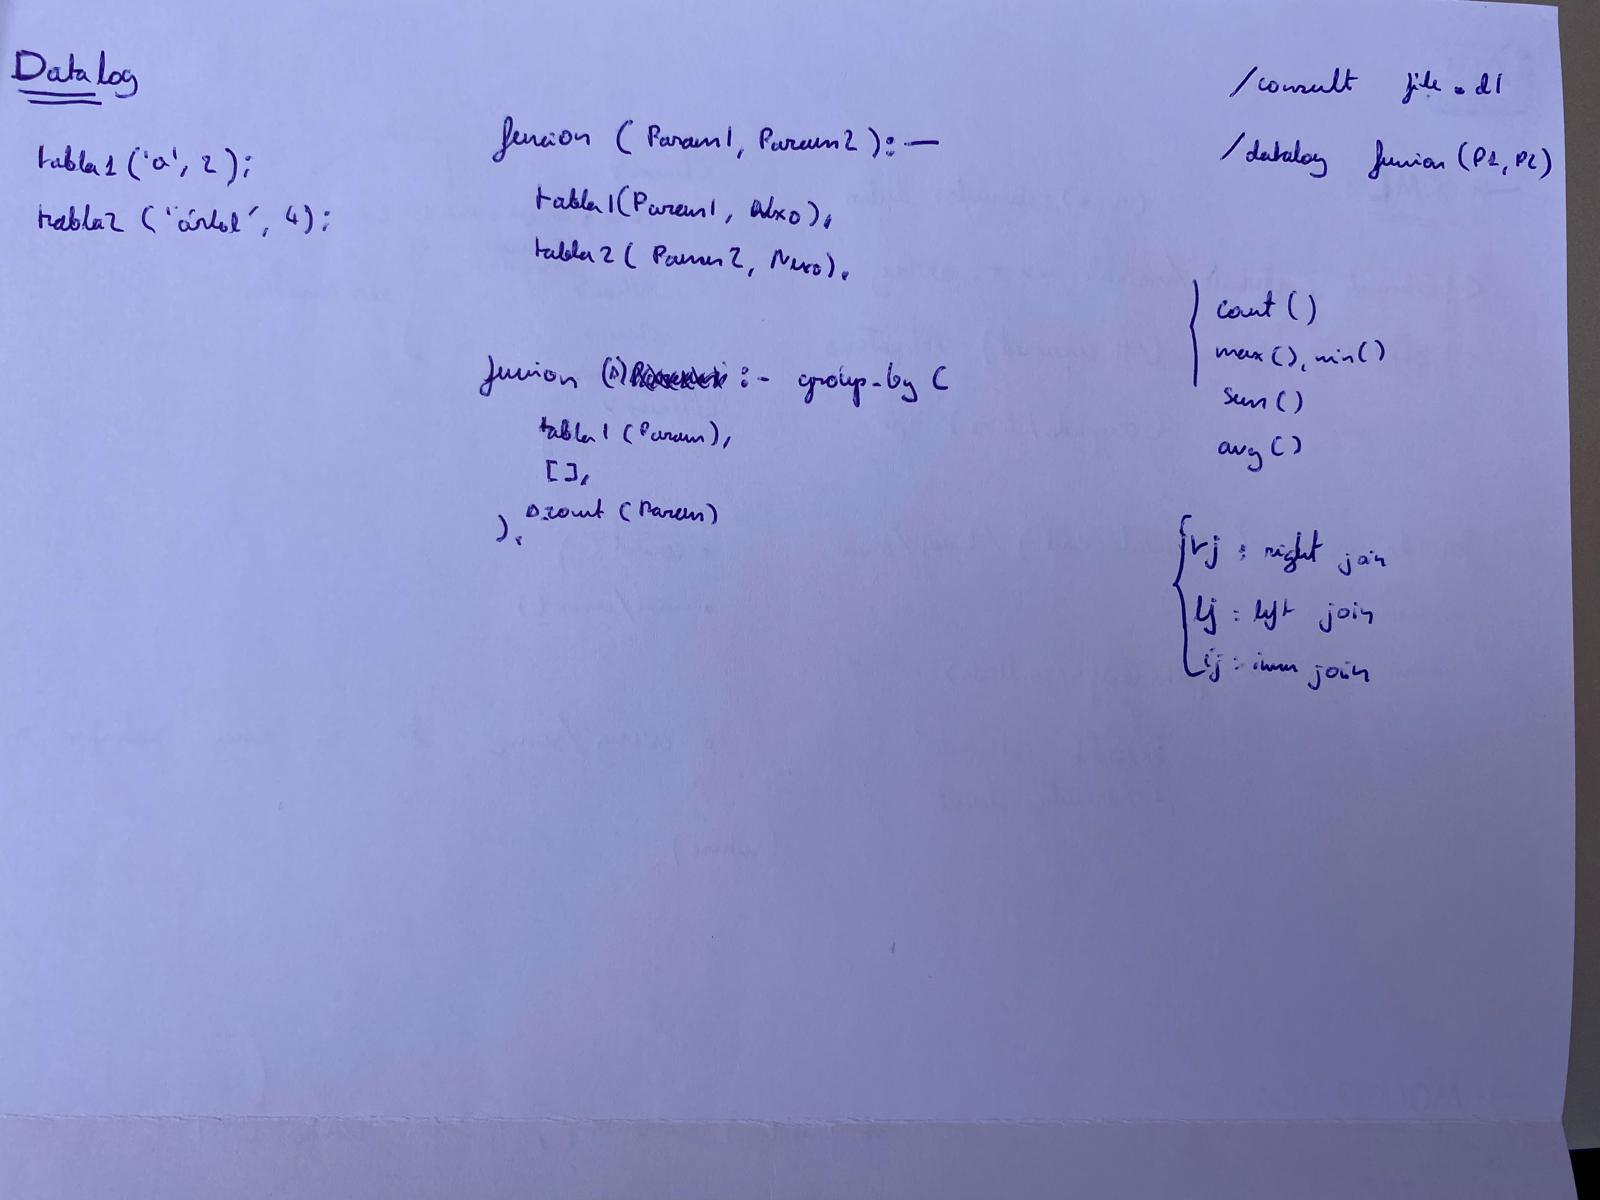 Datalog
tabla1 ('a', 2);
tabla2 ('árbol', 4);
funcion ( Param1, Param2 ) :-
tabla1(Param1, Nexo),
tabla2 ( Param2, Nexo).
funcion ( :- group-by (
tabla1 (Param),
[],
count (Param)
).
/consult file.dl
/datalog funcion (P1, P2)
count ()
max (), min ()
sum ()
avg ()
rj : right join
lj : left join
ij : inner join